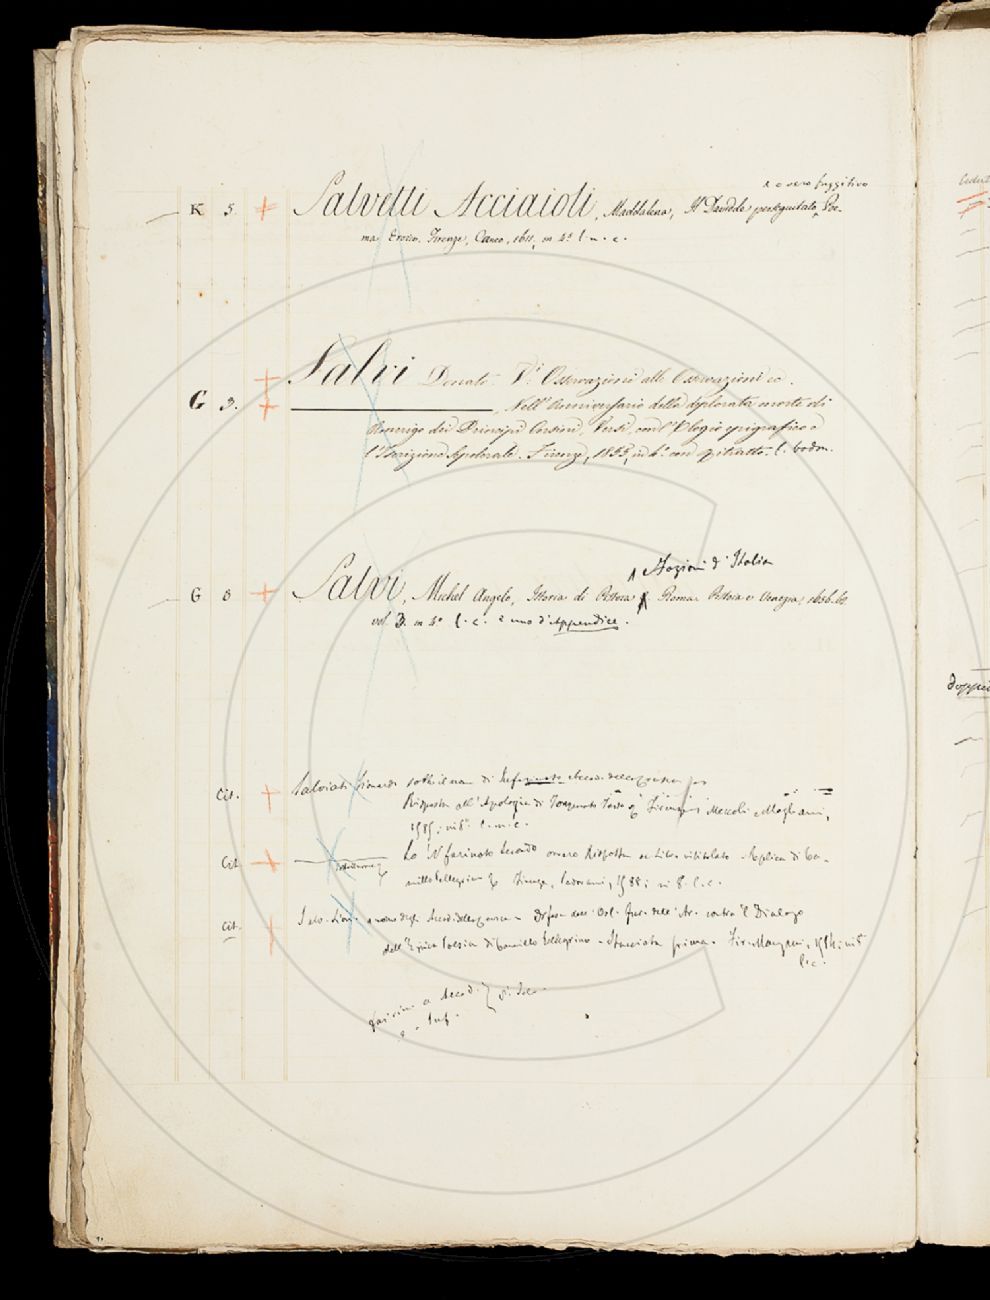 o vero fuggitivo
K 5. Salvetti Acciaioli, Maddalena, Il Davide perseguitato, Poe-
ma Eroico. Firenze, Caneo, 1611, in 4º l. n. c.
Salvi Donato. V.i Osservazioni alle Osservazioni ec.
G 3. Nell'Anniversario della deplorata morte di
Amerigo dei Principi Corsini, Versi, con l'Elogio epigrafico e
l'Iscrizione Sepolcrale. Firenze, 1835, in 4º con ritratto. l. bodon.
Stazioni d'Italia
G 8 Salvi, Michel Angelo, Istoria di Pistoia Roma Pistoia e Venezia, 1656.
vol. 3. in 4º l. c. e uno d'Appendice.
doppio
Cit. Salviati Lionardo sotto il nome di Infarinato Accad. della Crusca
Risposta all'Apologia di Torquato Tasso Firenze, Meccoli e Magliani,
1585, in 8º l. n. c.
Cit. Lo 'Nfarinato Secondo ovvero Risposta al Libro intitolato Replica di Ca-
millo Pellegrino Firenze, Padovani, 1588; in 8. l. c.
Cit. Salv. Lion. a nome degli Accad. della Crusca Difesa dell'Orl. Fur. dell'Ar. contra 'l Dialogo
dell'Epica Poesia di Cammillo Pellegrino Stacciata prima. Fir. Manzani, 1584, in 8º
l. c.
Accad.
Inf.